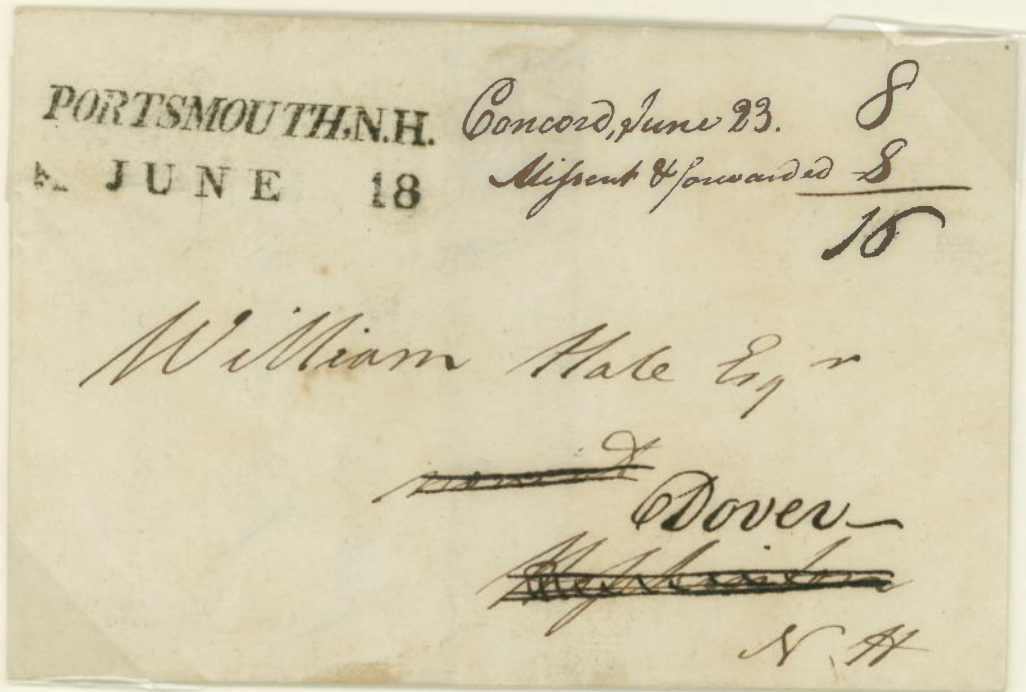 PORTSMOUTH,N.H.
JUNE 18
Concord, June 23. 8
Missent & forwarded 8
16
William Hale Esqr
Dover
N. H